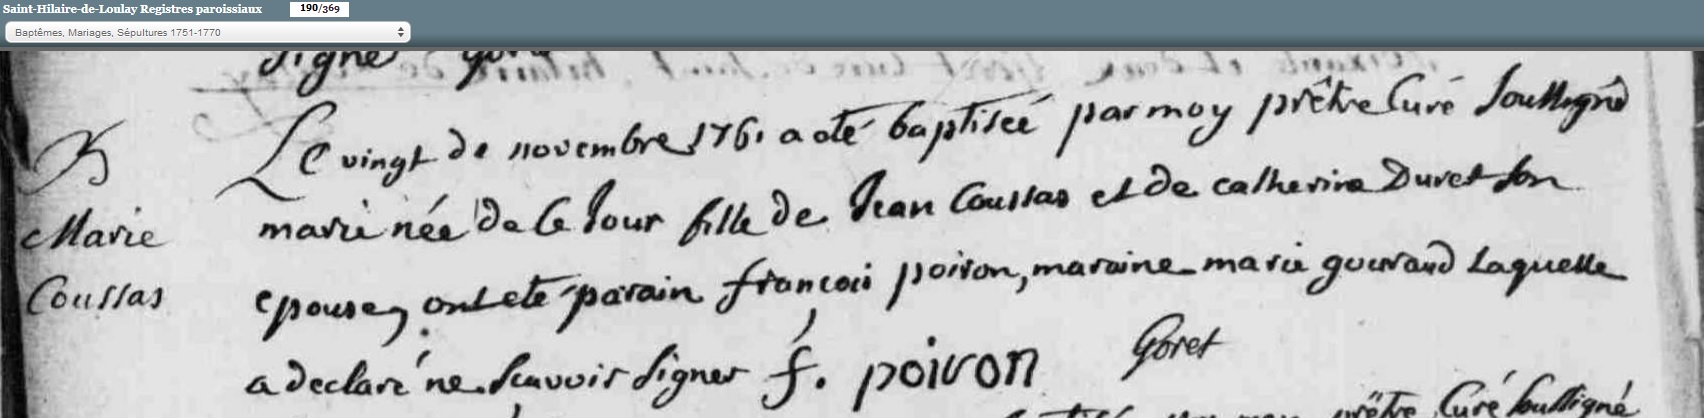 Saint-Hilaire-de-Loulay Registres paroissiaux 190/369
Baptêmes, Mariages, Sépultures 1751-1770
signer
B
Marie
Coussas
Le vingt de novembre 1761 a oté baptisée par moy prêtre Curé soussigné
marie née de ce jour fille de Jean Coussas et de catherine Duret son
epouse, ont eté parain francoi poiron, maraine marie gouraud Laquelle
a declaré ne scavoir signer f. poiron Goret
prêtre Curé soussigné